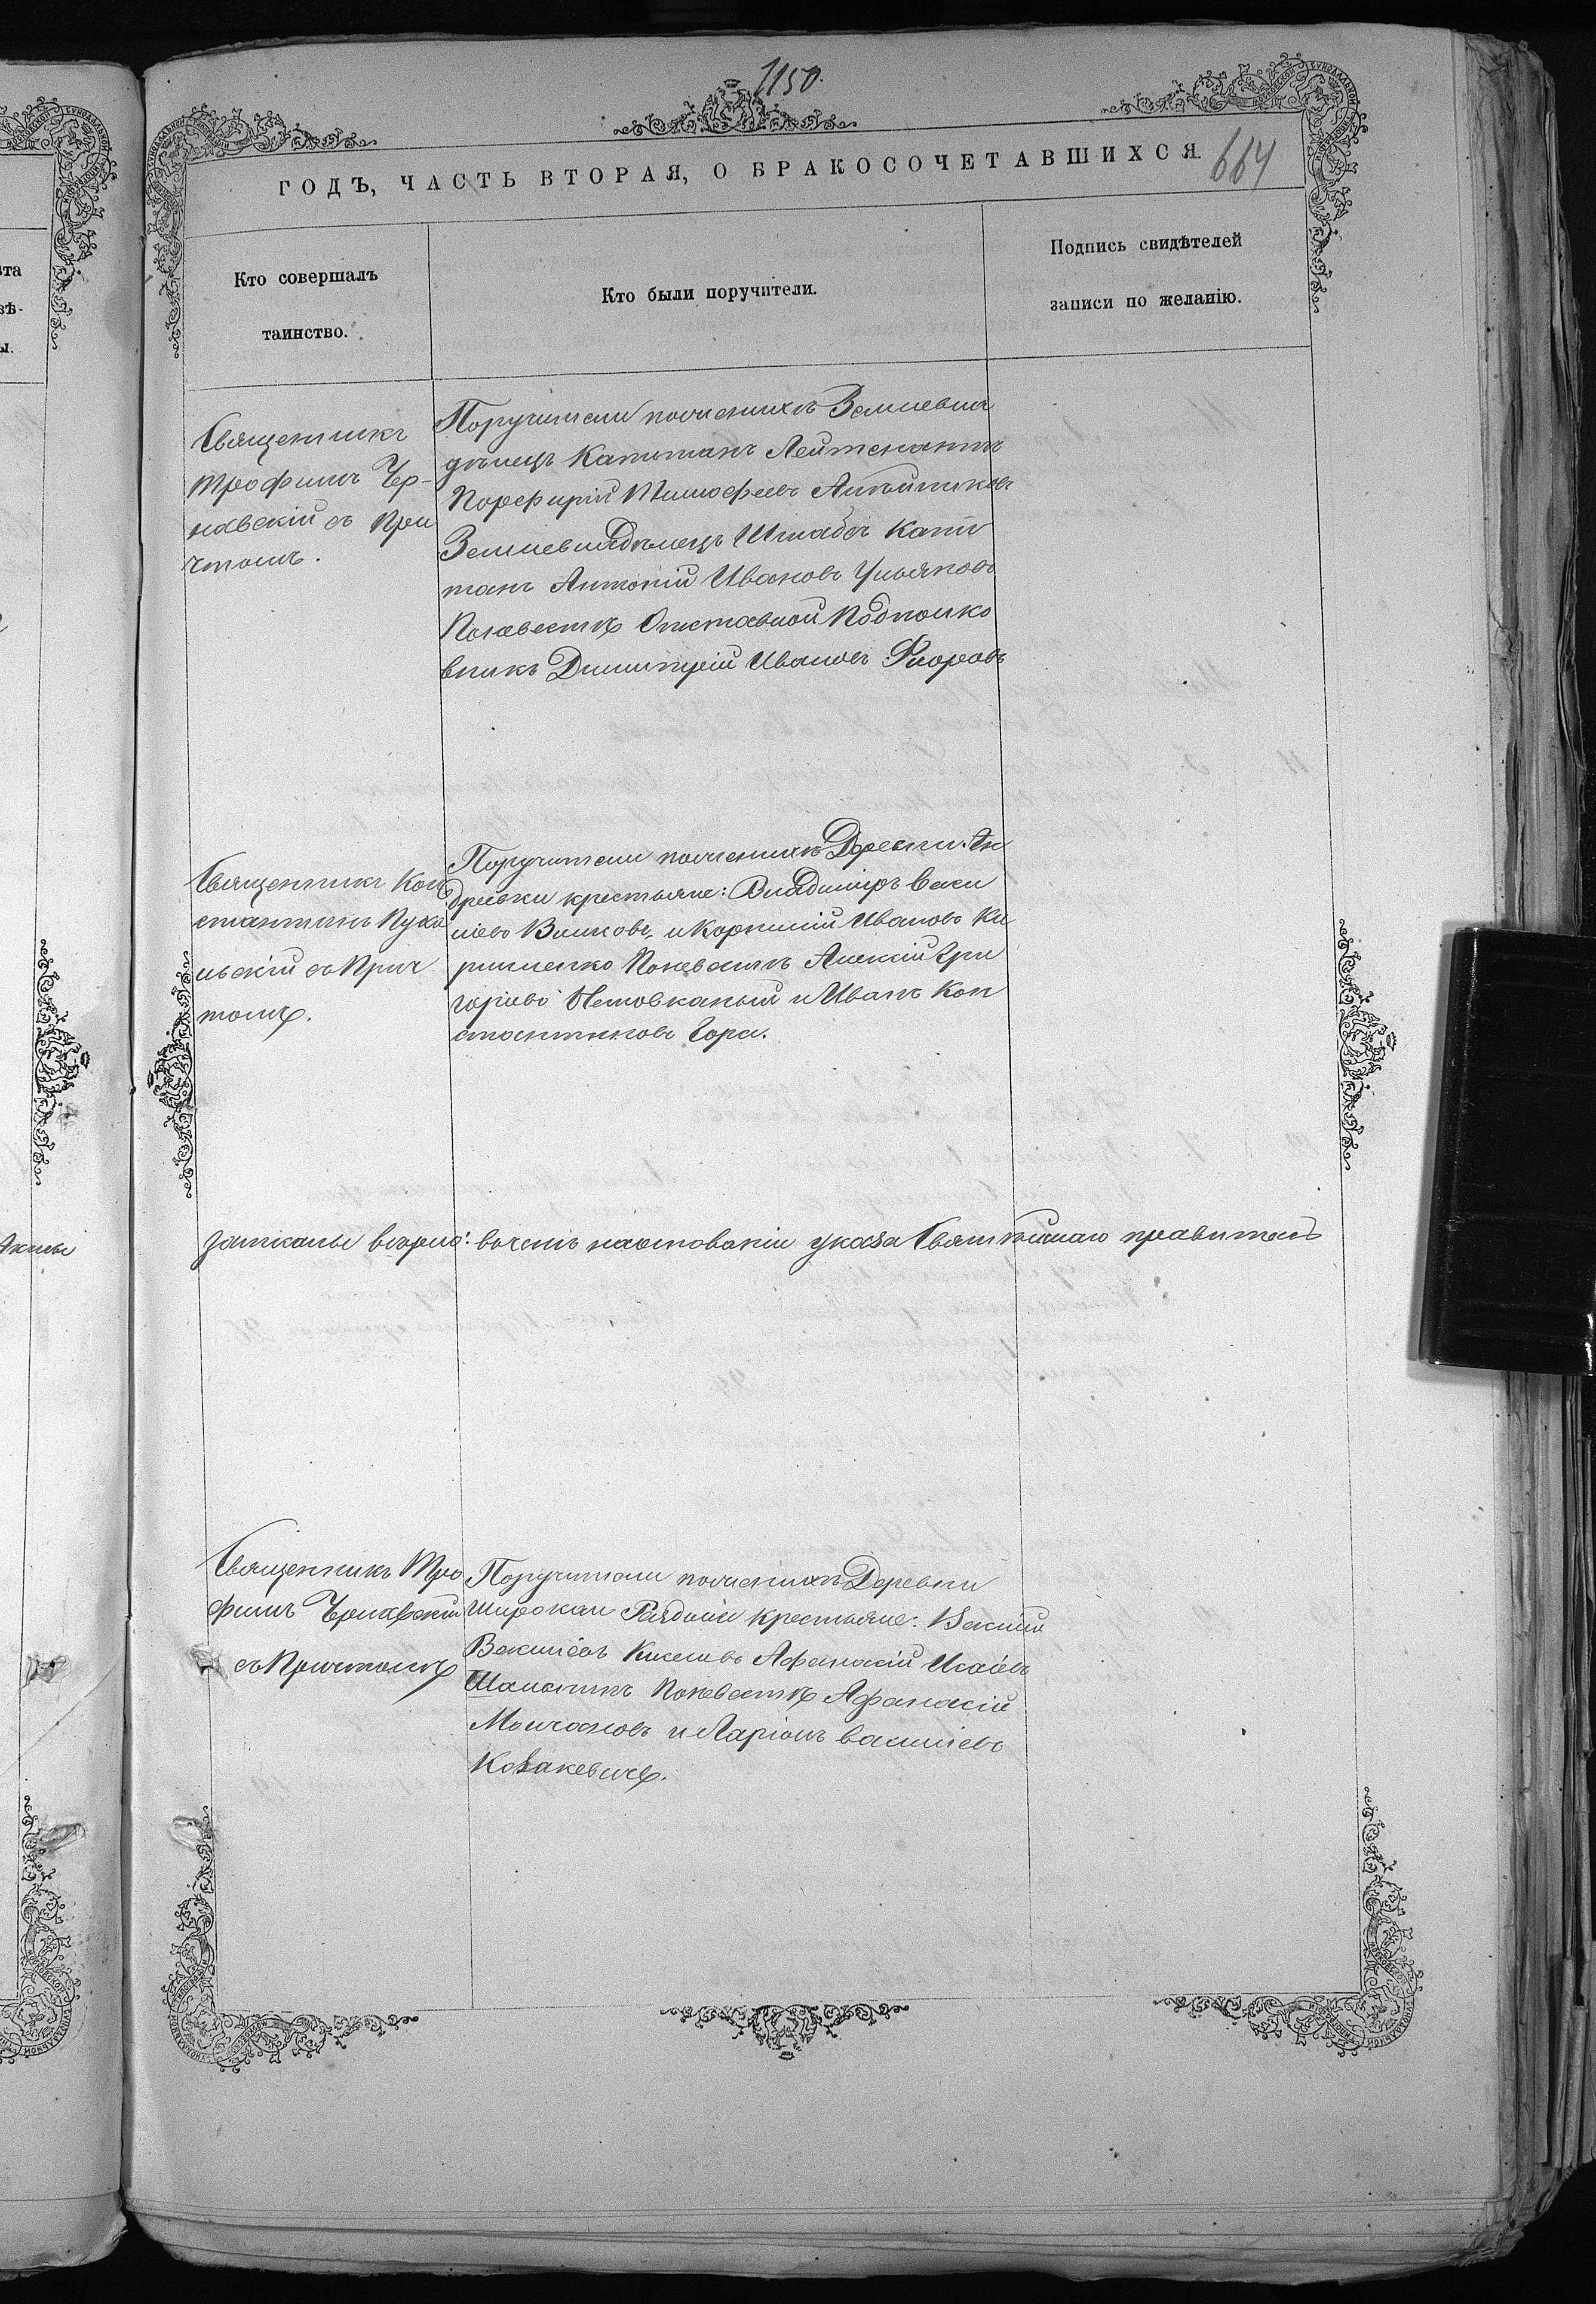 1150.
ГОДЪ, ЧАСТЬ ВТОРАЯ, О БРАКОСОЧЕТАВШИХСЯ.
664
Кто совершалъ
таинство.
Кто были поручители.
Подпись свидѣтелей
записи по желанію.
Священникъ
Трофимъ Чер-
навскій съ При
чтомъ.
Поручители поженихѣ Землевла
дѣлецъ Капитанъ Лейтенантъ
Порфирій Тимофеевъ
Землевладѣлецъ Штабсъ Капи
танъ Антоній Ивановъ Ульяновъ
Поневестѣ Отставной Подполко
вникъ Димитрій Ивановъ
Священникъ Кон
стантинъ
съ Прич
томъ.
Поручители поженихѣ Деревни Ан
дреевки крестьяне: Владиміръ Васи
ліевъ Волковъ, и Корнилій Ивановъ Ки
риленко Поневестѣ Алексій Гри
горіевъ и Иванъ Кон
стантиновъ Гора.
вочемъ наосновании указа Святѣйшаго правитель
Священникъ Тро
фимъ Чернавскій
съ Причтомъ
Поручители поженихѣ Деревни
Широкаи крестьяне:
Василіевъ Киселовъ Афанасій Исаіевъ
Поневестѣ Афанасій
Молчановъ и Ларіонъ Василіевъ
Козакевичъ.
та
вѣ-
ы.